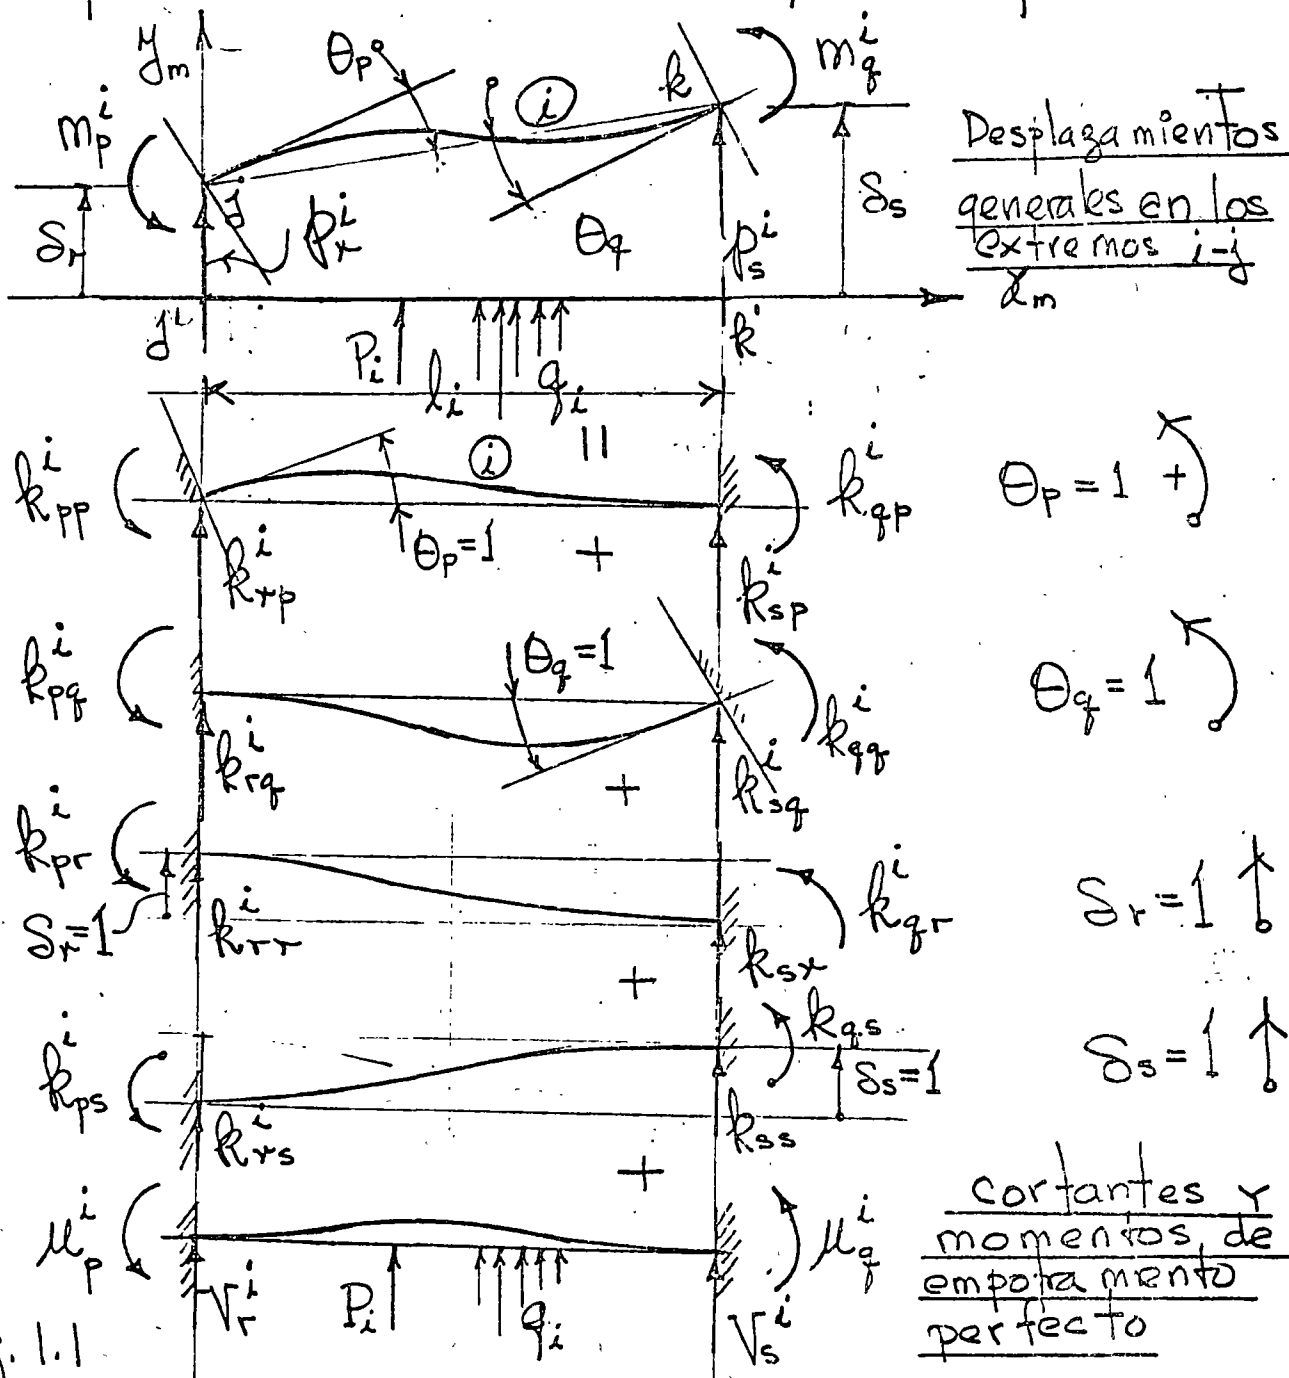 y_m
θ_p
i
k
m_q^i
m_p^i
Desplazamientos
generales en los
extremos i-j
δ_r
j
p_r^i
θ_q
p_s^i
δ_s
x_m
j'
P_i
l_i
q_i
k'
=
k_pp^i
i
k_qp^i
θ_p = 1 +
k_rp^i
θ_p = 1
+
k_sp^i
k_pq^i
θ_q = 1
θ_q = 1
k_rq^i
k_qq^i
+
k_sq^i
k_pr^i
δ_r = 1
k_rr^i
k_qr^i
δ_r = 1
k_sr
+
k_ps^i
k_qs
δ_s = 1
δ_s = 1
k_rs^i
k_ss
+
μ_p^i
μ_q^i
Cortantes y
momentos de
empotramiento
perfecto
V_r^i
P_i
q_i
V_s^i
. 1.1